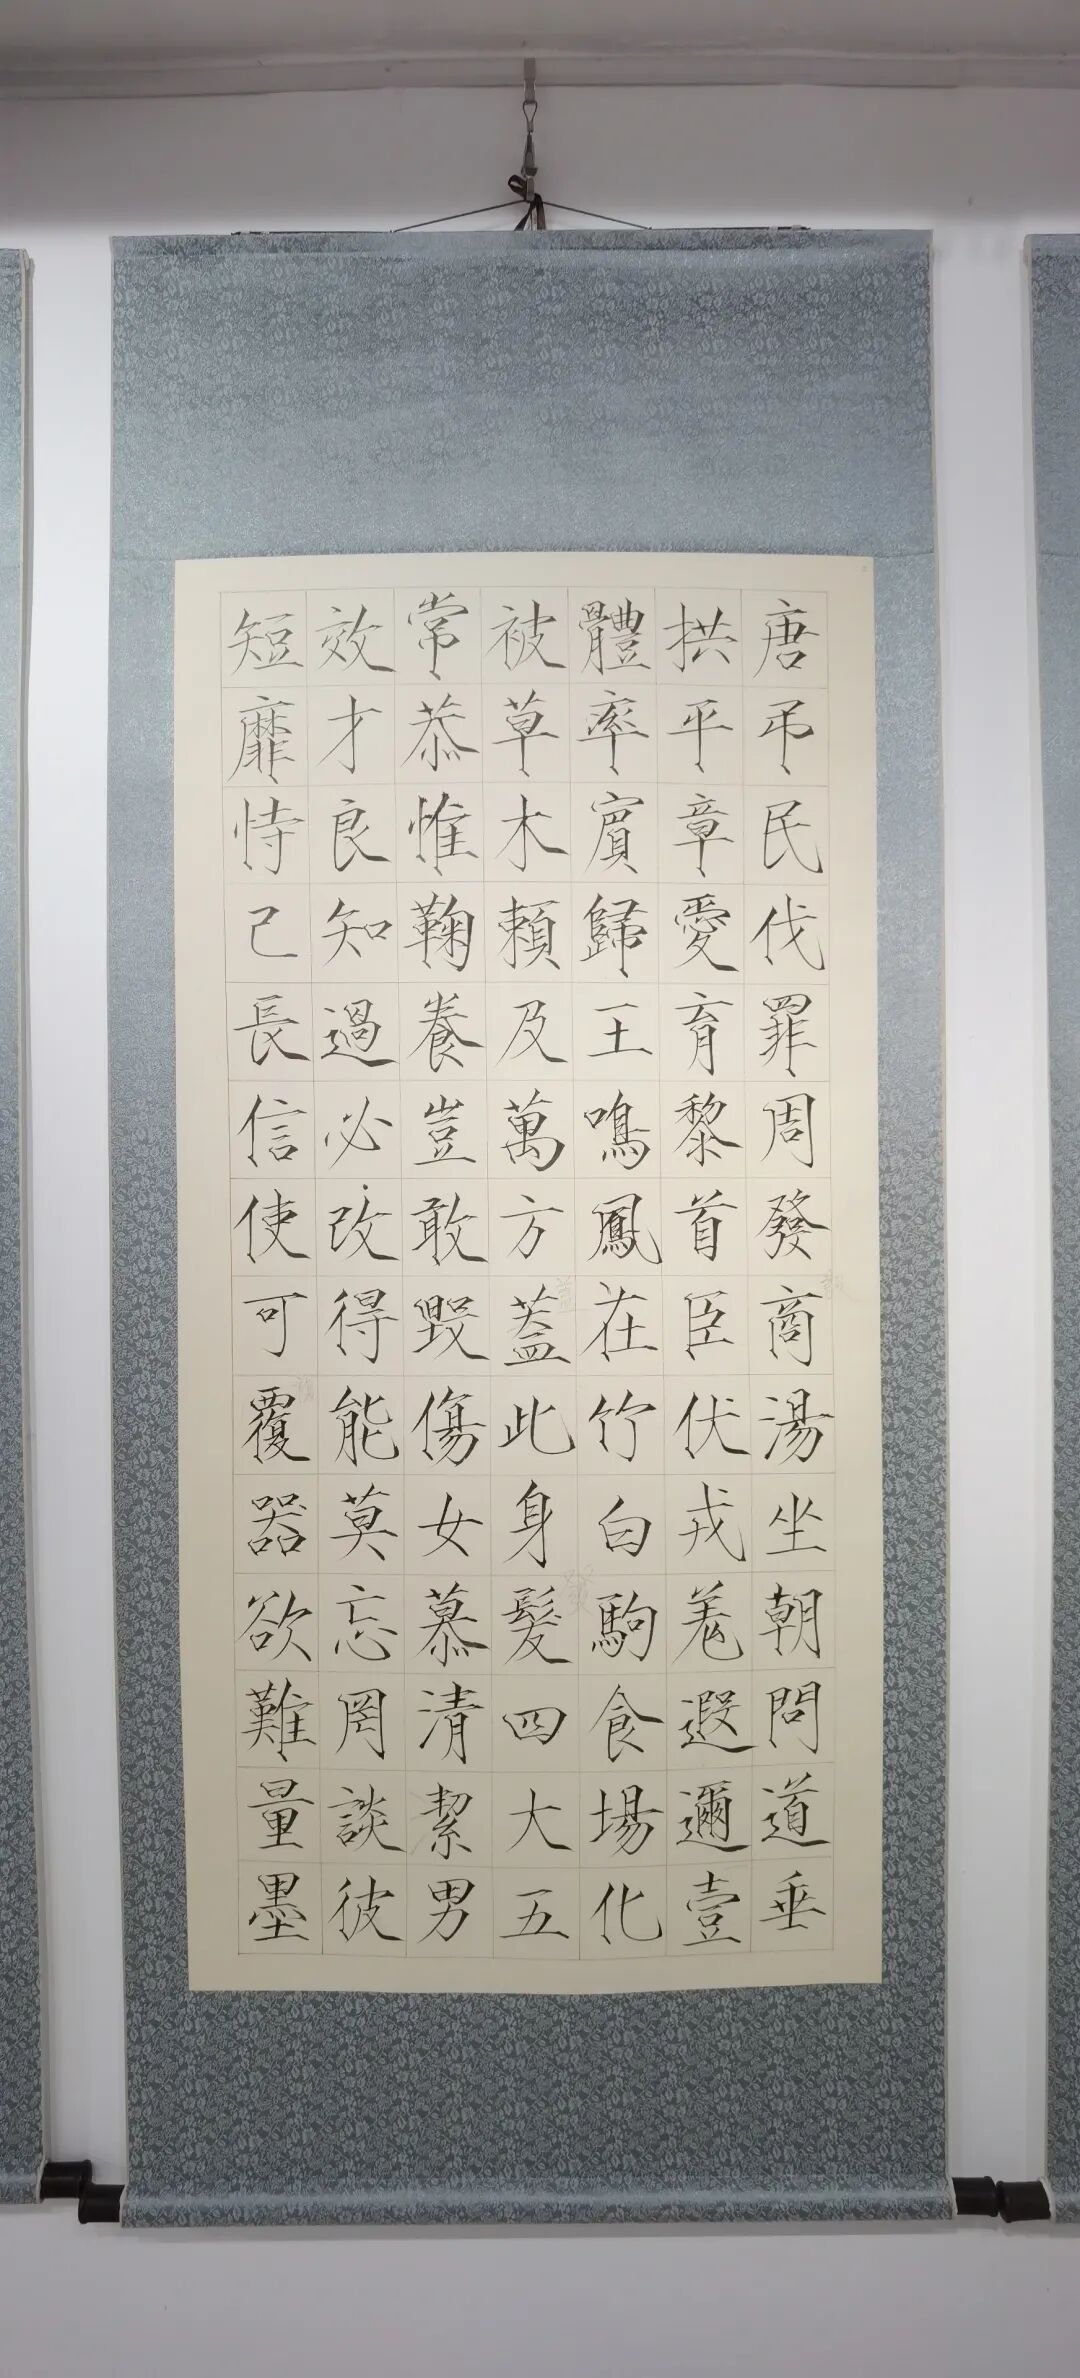 唐弔民伐罪周發商湯坐朝問道垂
拱平章愛育黎首臣伏戎羌遐邇壹
體率賓歸王鳴鳳在竹白駒食場化
被草木賴及萬方蓋此身髮四大五
常恭惟鞠養豈敢毀傷女慕清絜男
效才良知過必改得能莫忘罔談彼
短靡恃己長信使可覆器欲難量墨